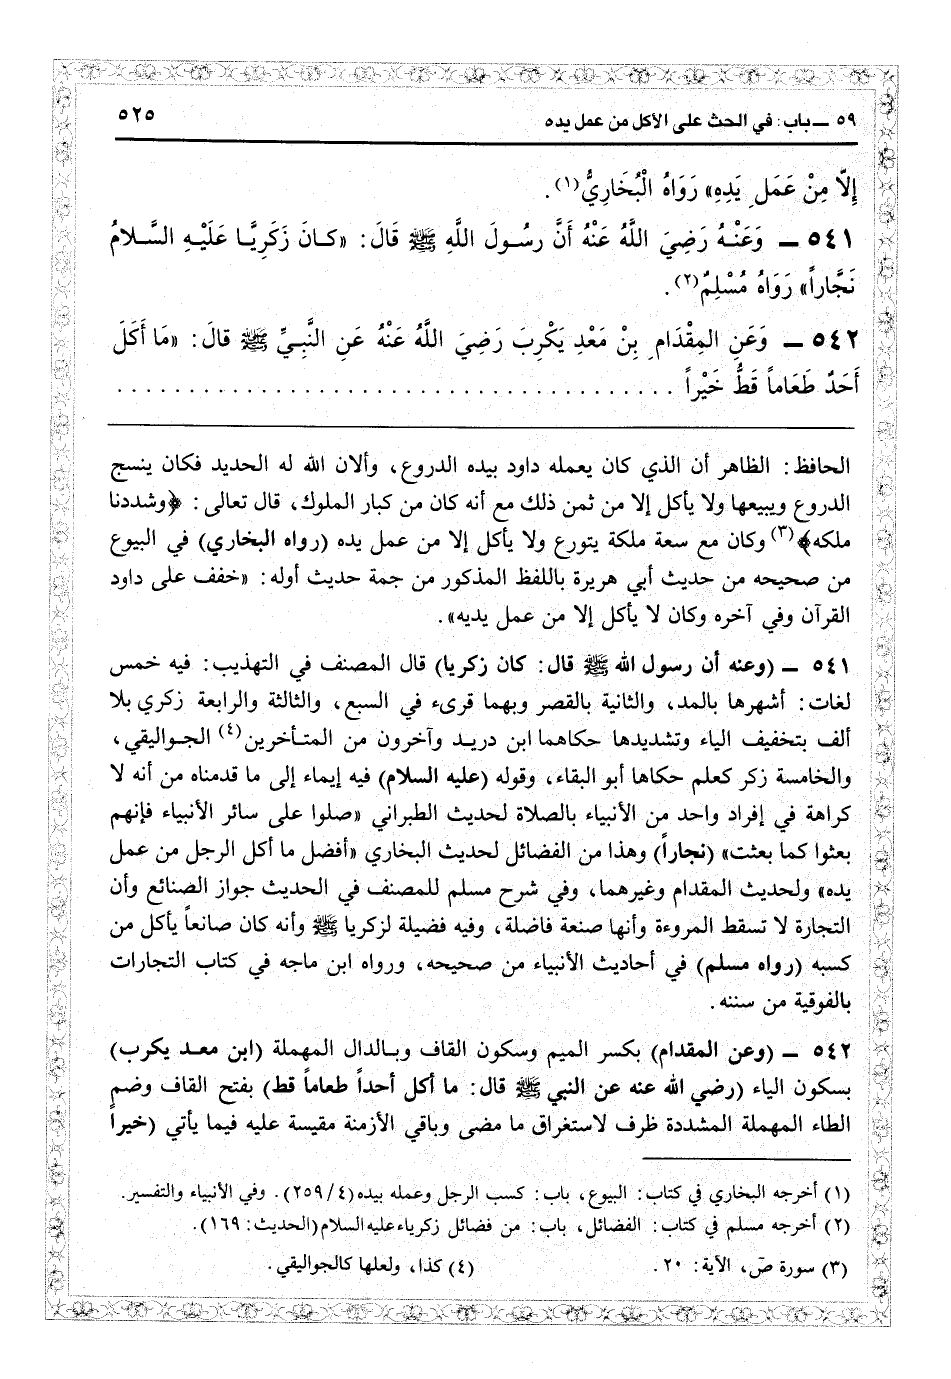 ٥٩ ــ باب: في الحث على الأكل من عمل يده
٥٢٥
إِلاَّ مِنْ عَمَلِ يَدِهِ» رَوَاهُ الْبُخَارِيُّ(١).
٥٤١ ــ وَعَنْهُ رَضِيَ اللَّهُ عَنْهُ أَنَّ رسُولَ اللَّهِ ﷺ قَالَ: «كانَ زَكَرِيَّا عَلَيْهِ السَّلامُ
نَجَّاراً» رَوَاهُ مُسْلِمٌ(٢).
٥٤٢ ــ وَعَنِ المِقْدَامِ بِنْ مَعْدِ يَكْرِبَ رَضِيَ اللَّهُ عَنْهُ عَنِ النَّبِيِّ ﷺ قالَ: «مَا أَكَلَ
أَحَدٌ طَعَاماً قَطُّ خَيْراً . . . . . . . . . . . . . . . . . . . . . . . . . . . . . . . . . . . . . .
الحافظ: الظاهر أن الذي كان يعمله داود بيده الدروع، وألان الله له الحديد فكان ينسج
الدروع ويبيعها ولا يأكل إلا من ثمن ذلك مع أنه كان من كبار الملوك، قال تعالى: ﴿وشددنا
ملكه﴾(٣) وكان مع سعة ملكة يتورع ولا يأكل إلا من عمل يده (رواه البخاري) في البيوع
من صحيحه من حديث أبي هريرة باللفظ المذكور من جمة حديث أوله: «خفف على داود
القرآن وفي آخره وكان لا يأكل إلا من عمل يديه».
٥٤١ ــ (وعنه أن رسول الله ﷺ قال: كان زكريا) قال المصنف في التهذيب: فيه خمس
لغات: أشهرها بالمد، والثانية بالقصر وبهما قرىء في السبع، والثالثة والرابعة زكري بلا
ألف بتخفيف الياء وتشديدها حكاهما ابن دريد وآخرون من المتأخرين(٤) الجواليقي،
والخامسة زكر كعلم حكاها أبو البقاء، وقوله (عليه السلام) فيه إيماء إلى ما قدمناه من أنه لا
كراهة في إفراد واحد من الأنبياء بالصلاة لحديث الطبراني «صلوا على سائر الأنبياء فإنهم
بعثوا كما بعثت» (نجاراً) وهذا من الفضائل لحديث البخاري «أفضل ما أكل الرجل من عمل
يده» ولحديث المقدام وغيرهما، وفي شرح مسلم للمصنف في الحديث جواز الصنائع وأن
التجارة لا تسقط المروءة وأنها صنعة فاضلة، وفيه فضيلة لزكريا ﷺ وأنه كان صانعاً يأكل من
كسبه (رواه مسلم) في أحاديث الأنبياء من صحيحه، ورواه ابن ماجه في كتاب التجارات
بالفوقية من سننه.
٥٤٢ ــ (وعن المقدام) بكسر الميم وسكون القاف وبالدال المهملة (ابن معد يكرب)
بسكون الياء (رضي الله عنه عن النبي ﷺ قال: ما أكل أحداً طعاماً قط) بفتح القاف وضم
الطاء المهملة المشددة ظرف لاستغراق ما مضى وباقي الأزمنة مقيسة عليه فيما يأتي (خيراً
(١) أخرجه البخاري في كتاب: البيوع، باب: كسب الرجل وعمله بيده (٤/ ٢٥٩). وفي الأنبياء والتفسير.
(٢) أخرجه مسلم في كتاب: الفضائل، باب: من فضائل زكرياء عليه السلام (الحديث: ١٦٩).
(٣) سورة صَ، الآية: ٢٠.
(٤) كذا، ولعلها كالجواليقي.